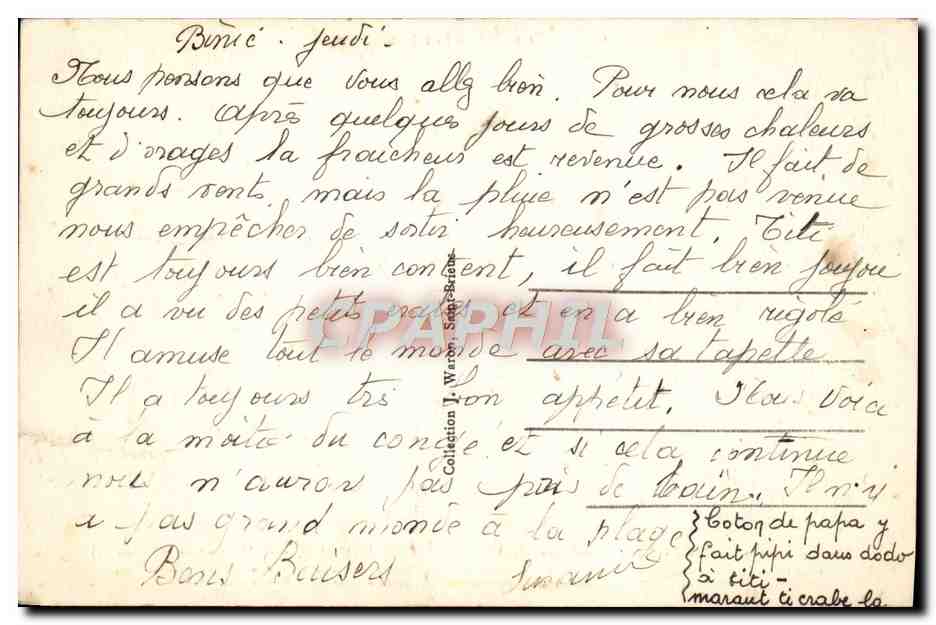 Binic. Jeudi.
Nous pensons que vous allez bien. Pour nous cela va
toujours. Après quelques jours de grosses chaleurs
et d'orages la fraicheur est revenue. Il fait de
grands vents, mais la pluie n'est pas venue
nous empêcher de sortir heureusement. Titi
est toujours bien content, il fait bien joujou
il a vu des petits crabes et en a bien rigolé
Il amuse tout le monde avec sa tapette
Il a toujours très bon appétit. Nous voici
à la moitié du congé et si cela continue
nous n'auron pas pris de bain. Il n'y
a pas grand monde à la plage
Bons Baisers
Boton de papa y
fait pipi dans dodo
à titi -
maraut ti crabe la
Collection J. Waron, Saint-Brieuc
CPAPHIL